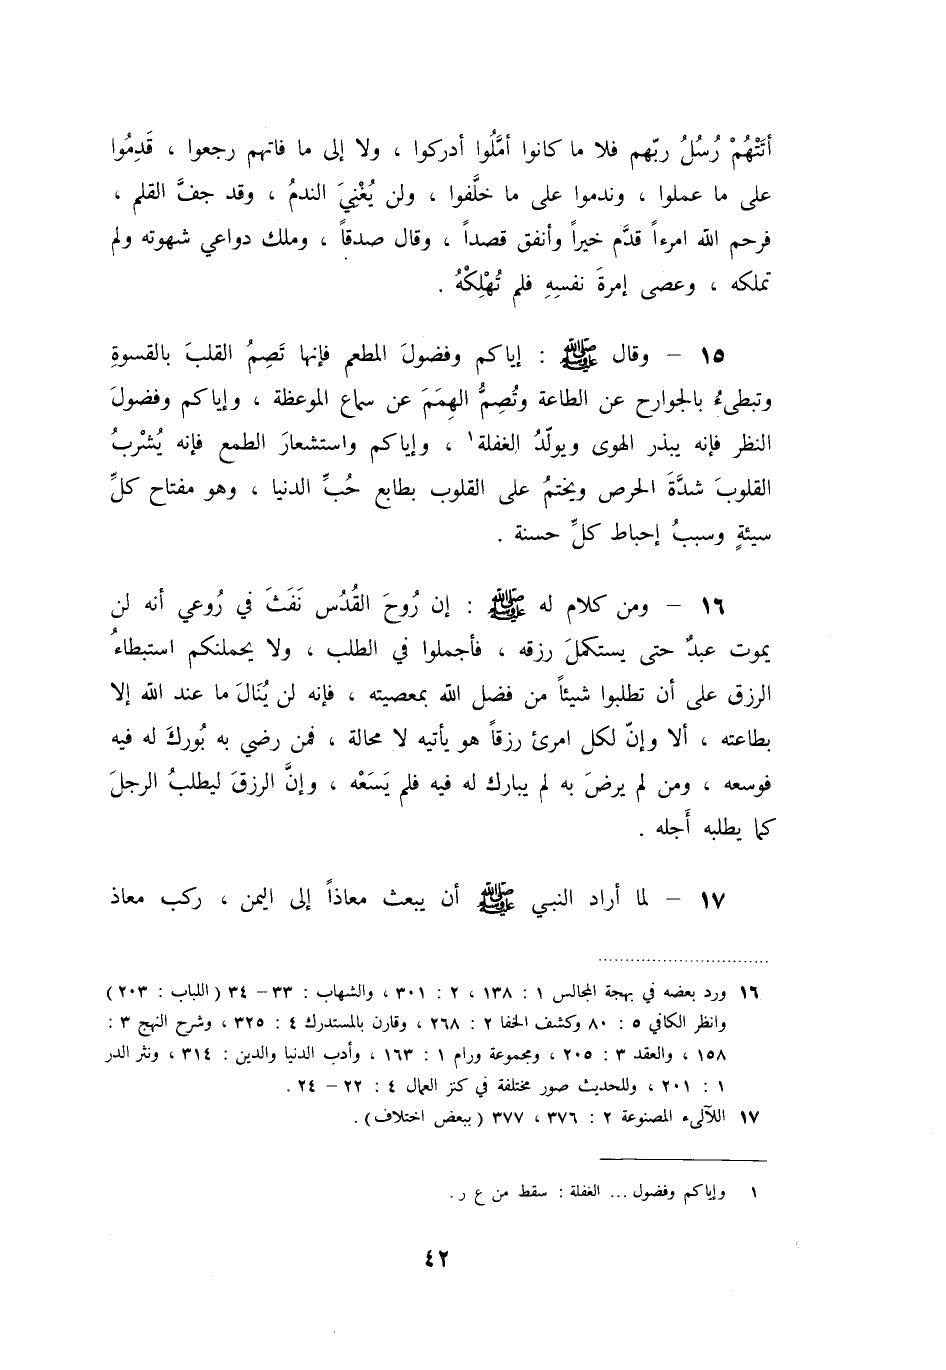 أتَتْهُمْ رُسُلُ ربّهم فلا ما كانوا أمَّلُوا أدركوا ، ولا إلى ما فاتهم رجعوا ، قَدِمُوا
على ما عملوا ، وندموا على ما خلَّفوا ، ولن يُغْنِيَ الندمُ ، وقد جفَّ القلم ،
فرحم الله امرءاً قدَّم خيراً وأنفق قصداً ، وقال صدقاً ، وملك دواعي شهوته ولم
تملكه ، وعصى إمرةَ نفسِهِ فلم تُهْلِكْهُ .
١٥ – وقال ﷺ : إياكم وفضولَ المطعم فإنها تَصِمُ القلبَ بالقسوةِ
وتبطىءُ بالجوارح عن الطاعة وتُصِمُّ الهِمَمَ عن سماع الموعظة ، وإياكم وفضولَ
النظر فإنه يبذر الهوى ويولّدُ الغفلة١ ، وإياكم واستشعارَ الطمع فإنه يُشْرِبُ
القلوبَ شدَّةَ الحرص ويختمُ على القلوب بطابع حُبِّ الدنيا ، وهو مفتاح كلِّ
سيئةٍ وسببُ إحباط كلِّ حسنة .
١٦ – ومن كلام له ﷺ : إن رُوحَ القُدُس نَفَثَ في رُوعي أنه لن
يموت عبدٌ حتى يستكملَ رزقه ، فأجملوا في الطلب ، ولا يحملنكم استبطاءُ
الرزق على أن تطلبوا شيئاً من فضل الله بمعصيته ، فإنه لن يُنَالَ ما عند الله إلا
بطاعته ، ألا وإنّ لكل امرئ رزقاً هو يأتيه لا محالة ، فمن رضي به بُوركَ له فيه
فوسعه ، ومن لم يرضَ به لم يبارك له فيه فلم يَسَعْه ، وإنَّ الرزقَ ليطلبُ الرجلَ
كما يطلبه أَجله .
١٧ – لما أراد النبي ﷺ أن يبعث معاذاً إلى اليمن ، ركب معاذ
١٦ ورد بعضه في بهجة المجالس ١ : ١٣٨ ، ٢ : ٣٠١ ، والشهاب : ٣٣ – ٣٤ ( اللباب : ٢٠٣ )
وانظر الكافي ٥ : ٨٠ وكشف الخفا ٢ : ٢٦٨ ، وقارن بالمستدرك ٤ : ٣٢٥ ، وشرح النهج ٣ :
١٥٨ ، والعقد ٣ : ٢٠٥ ، ومجموعة ورام ١ : ١٦٣ ، وأدب الدنيا والدين : ٣١٤ ، ونثر الدر
١ : ٢٠١ ، وللحديث صور مختلفة في كنز العمال ٤ : ٢٢ – ٢٤ .
١٧ اللآلىء المصنوعة ٢ : ٣٧٦ ، ٣٧٧ ( ببعض اختلاف ) .
١ وإياكم وفضول ... الغفلة : سقط من ع ر .
٤٢